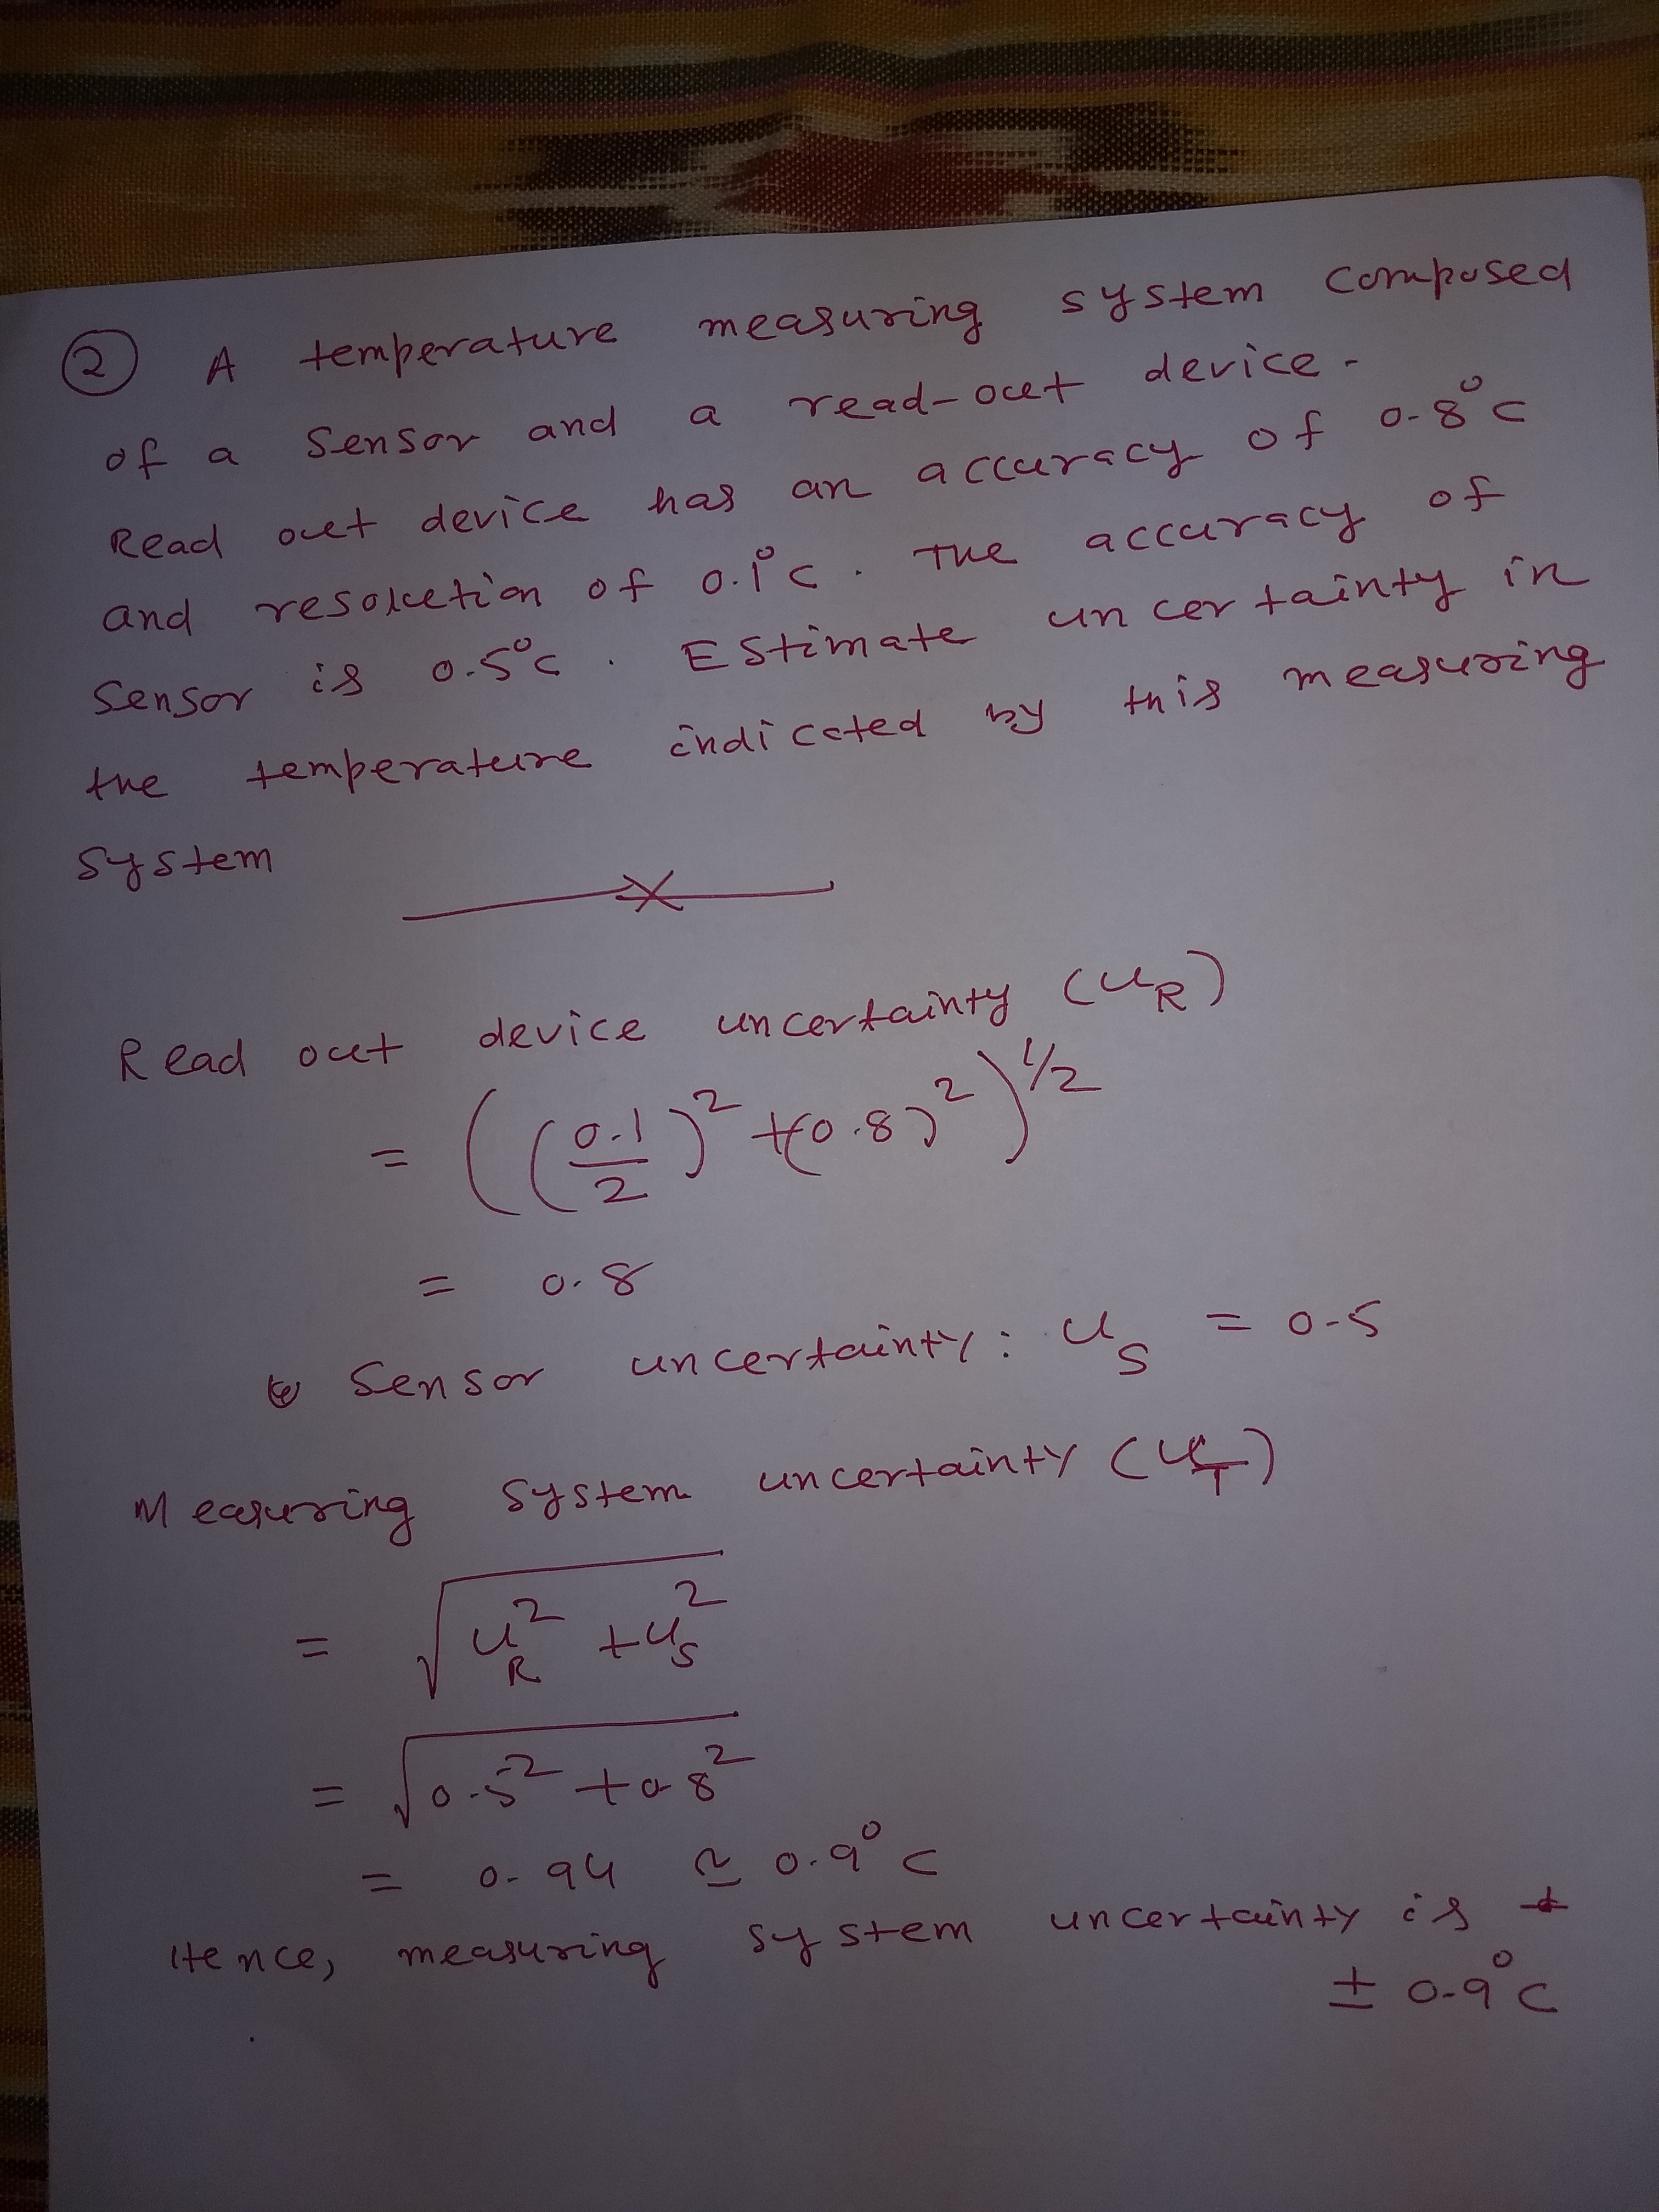 ② A temperature measuring system composed
of a sensor and a read-out device.
Read out device has an accuracy of 0.8°C
and resolution of 0.1°C. The accuracy of
Sensor is 0.5°C. Estimate uncertainty in
the temperature indicated by this measuring
system
Read out device uncertainty (U_R)
= ((0.1/2)² + (0.8)²)^1/2
= 0.8
Sensor uncertainty: U_S = 0.5
Measuring system uncertainty (U_T)
= √(U_R² + U_S²)
= √(0.5² + 0.8²)
= 0.94 ≃ 0.9°C
Hence, measuring system uncertainty is
± 0.9°C